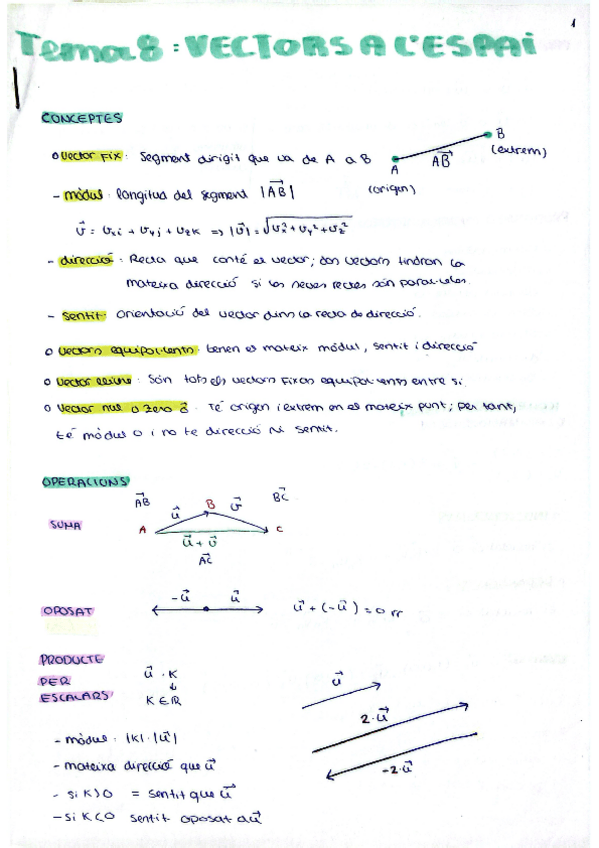 1
Tema 8: VECTORS A L'ESPAI
CONCEPTES
o Vector Fix: Segment dirigit que va de A a B
A (origen) AB B (extrem)
- mòdul: longitud del segment |AB|
v = vxi + vyj + vzk => |v| = √vx²+vy²+vz²
- direcció: Recta que conté el vector; dos vectors tindran la
mateixa direcció si les seves rectes són paral·leles.
- Sentit: orientació del vector dins la recta de direcció.
o Vectors equipol·lents: tenen el mateix mòdul, sentit i direcció
o Vector lliure: Són tots els vectors Fixos equipol·lents entre si.
o Vector nul o zero o: Té origen i extrem en el mateix punt; per tant,
té mòdul 0 i no te direcció ni sentit.
OPERACIONS
SUMA
AB u B v BC
A u + v C
AC
OPOSAT
-u u u + (-u) = 0
PRODUCTE
PER
ESCALARS
u · K
K ∈ R
u
2·u
-2·u
- mòdul: |K|·|u|
- mateixa direcció que u
- si K>0 = sentit que u
- si K<0 sentit oposat a u